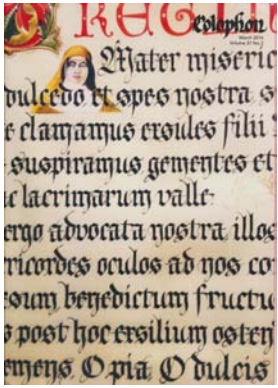 REGI
Colophon
Mater miseric
dulcedo et spes nostra s
e clamamus exsules filii
suspiramus gementes et
c lacrimarum valle
ergo advocata nostra illos
ricordes oculos ad nos co
esum benedictum fructu
s post hoc exsilium osten
emens O pia O dulcis